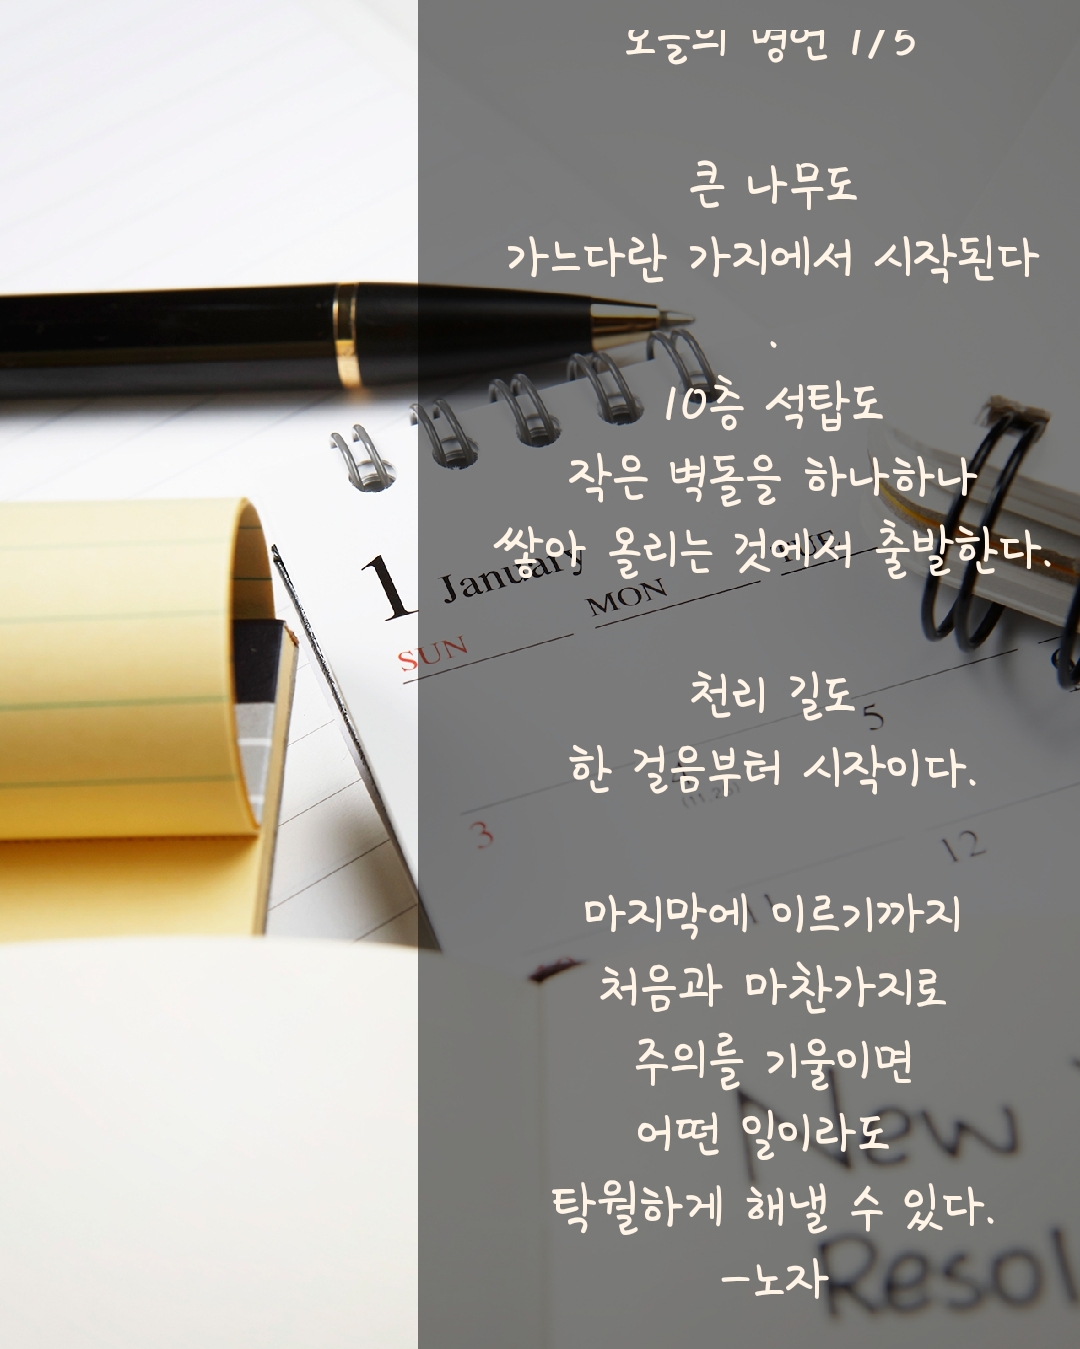 오늘의 명언 1/5
큰 나무도
가느다란 가지에서 시작된다
.
10층 석탑도
작은 벽돌을 하나하나
쌓아 올리는 것에서 출발한다.
천리 길도
한 걸음부터 시작이다.
마지막에 이르기까지
처음과 마찬가지로
주의를 기울이면
어떤 일이라도
탁월하게 해낼 수 있다.
-노자
1 January
SUN
MON
TUE
5
3
12
11
New
Resol